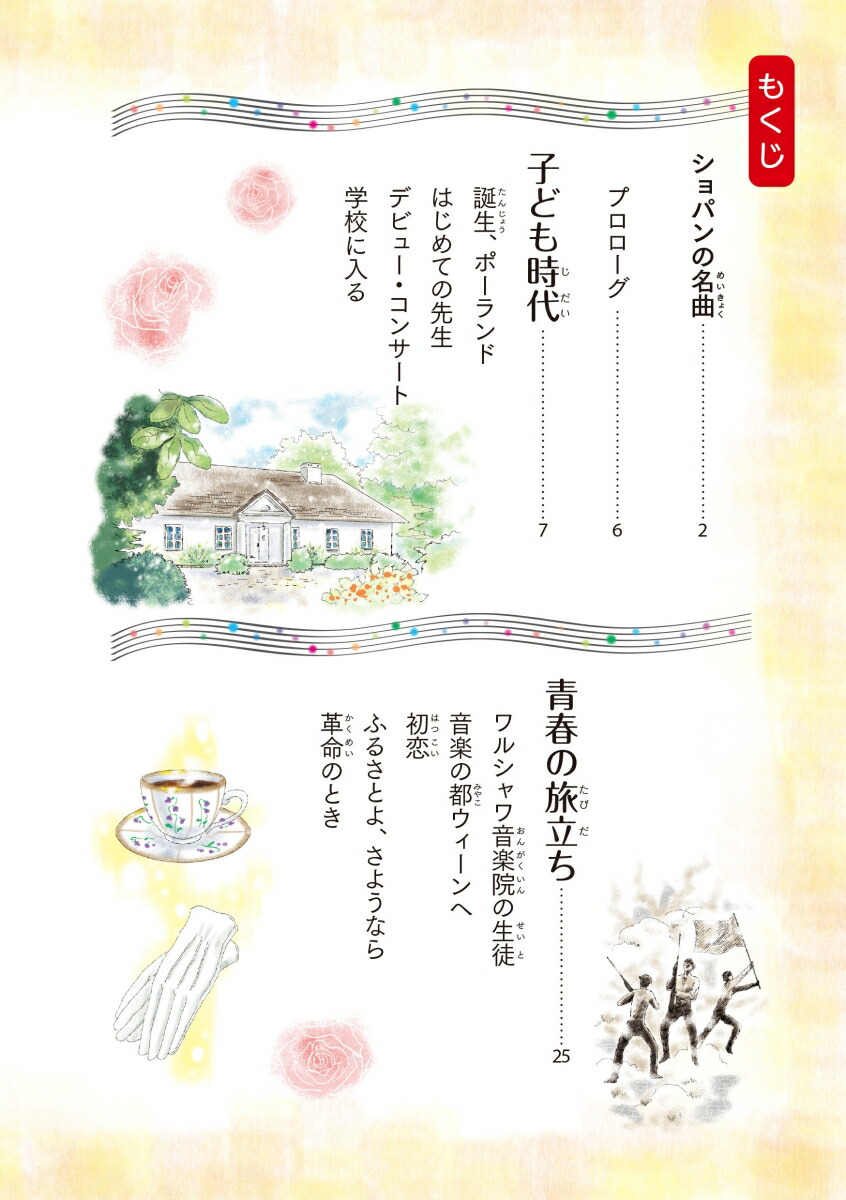 もくじ
ショパンの名曲 2
プロローグ 6
子ども時代 7
誕生、ポーランド
はじめての先生
デビュー・コンサート
学校に入る
青春の旅立ち 25
ワルシャワ音楽院の生徒
音楽の都ウィーンへ
初恋
ふるさとよ、さようなら
革命のとき